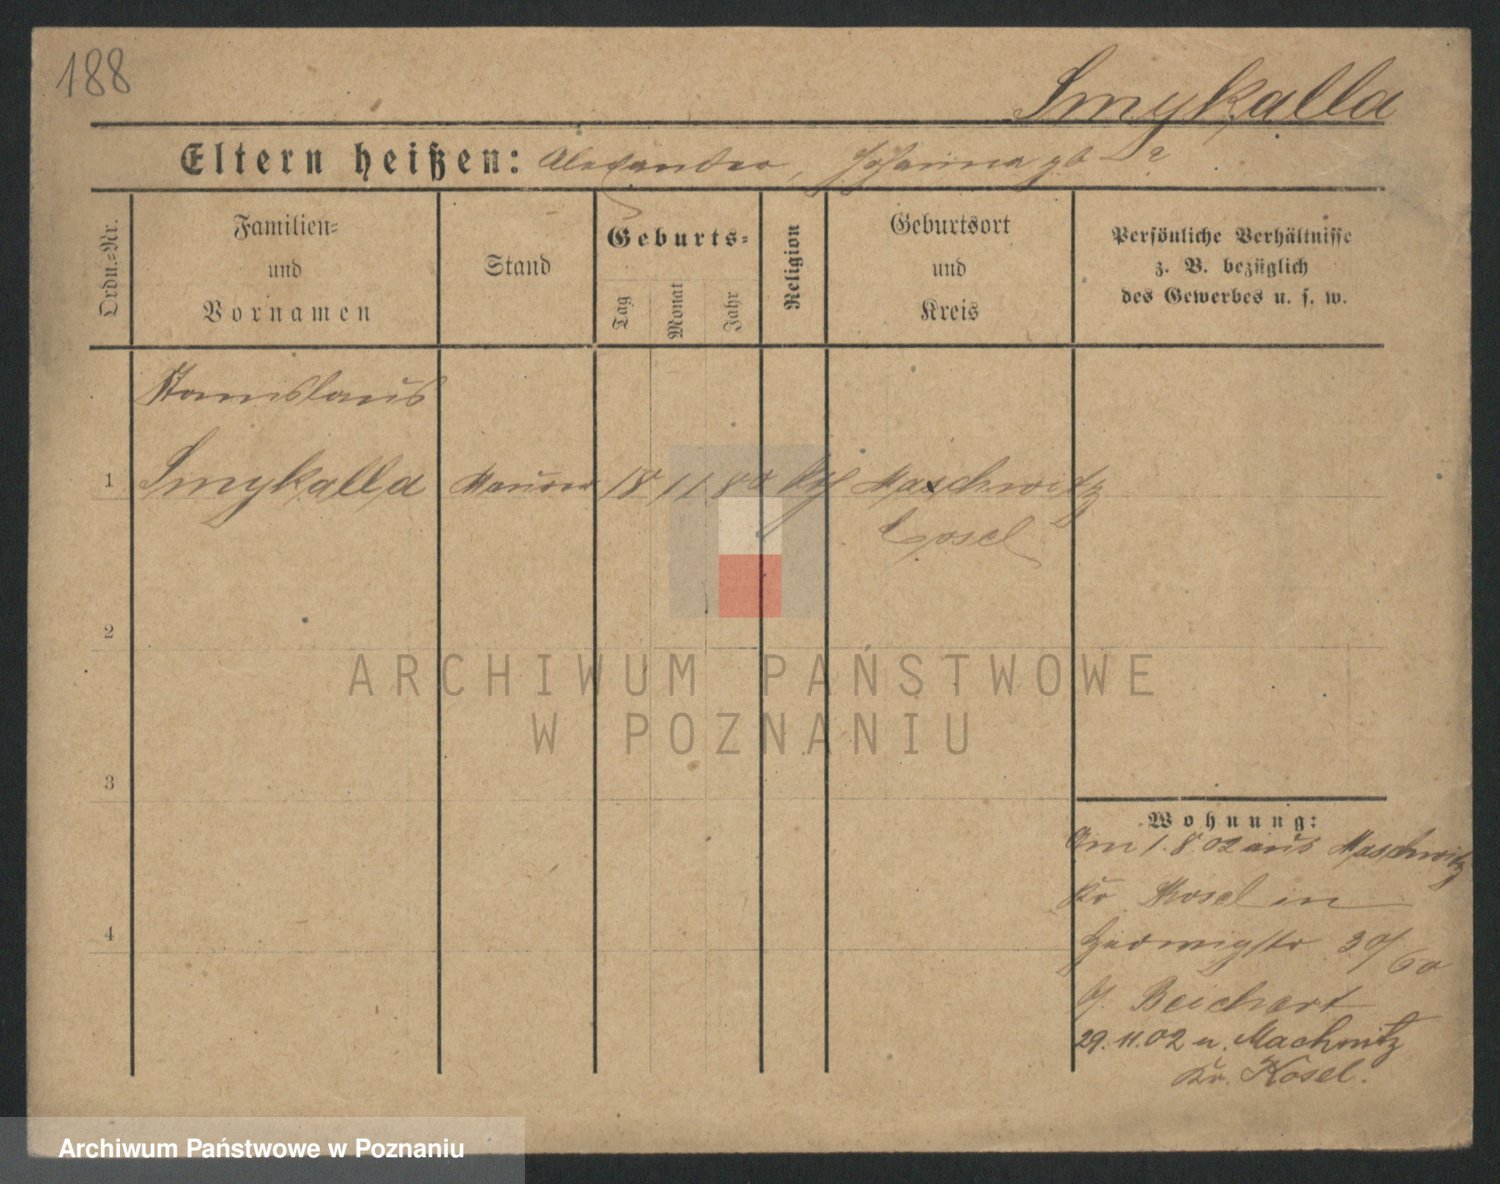 188
Smykalla
Eltern heißen: Alexander, Johanna gb ?
Ordn.=Nr.
Familien=
und
Vornamen
Stand
Geburts=
Tag
Monat
Jahr
Religion
Geburtsort
und
Kreis
Persönliche Verhältnisse
z. B. bezüglich
des Gewerbes u. s. w.
Stanislaus
1 Smykalla Maurer 18 11 80 kth Maschwitz
Cosel
2
3
4
Wohnung:
Am 1.8.02 aus Maschwitz
Kr Kosel in
Hedwigstr 30/
b/ Beichert
29.11.02 n. Machnitz
Kr. Kosel.
ARCHIWUM PAŃSTWOWE
W POZNANIU
Archiwum Państwowe w Poznaniu